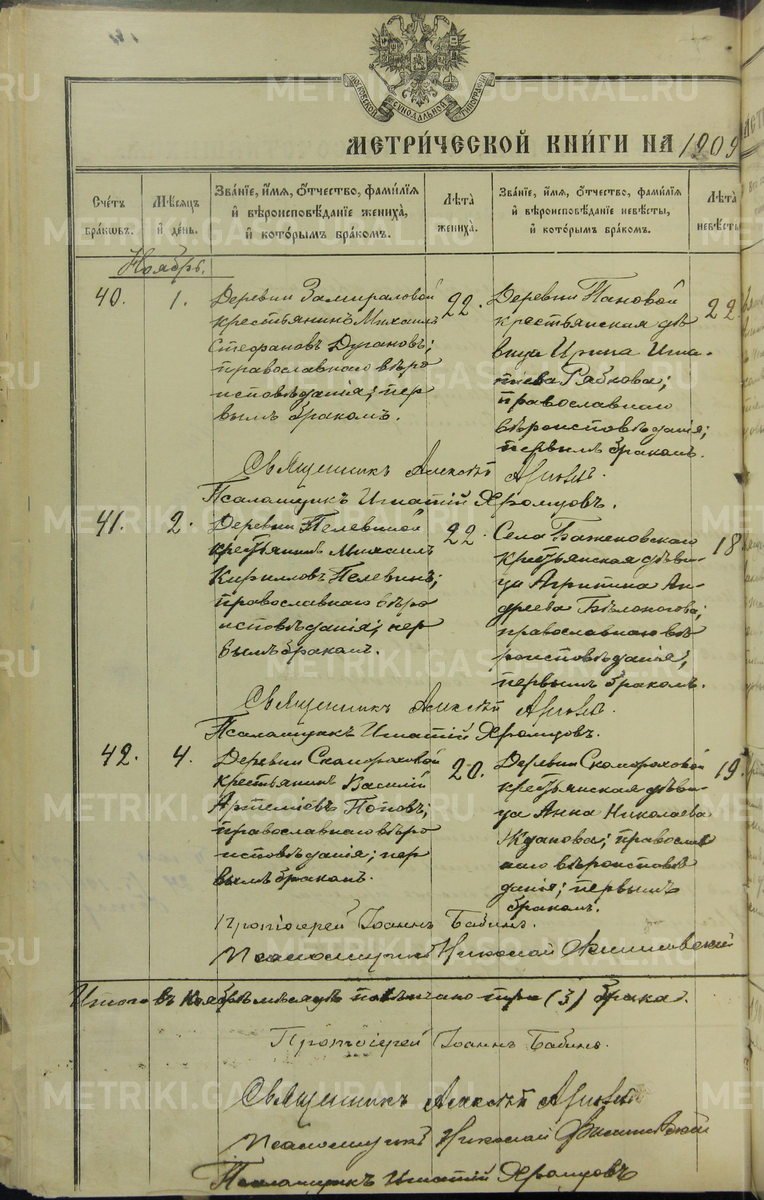 МОСКОВСКОЙ СѴНОДАЛЬНОЙ ТИПОГРАФІИ
МЕТРИ́ЧЕСКОЙ КНИ́ГИ НА 1909
Сче́тъ бра́кѡвъ.
Мѣ́сяцъ и҆ де́нь.
Зва́нїе, и҆́мѧ, ѻ҆́тчество, фами́лїѧ
и҆ вѣроисповѣ́данїе жениха̀,
и҆ кото́рымъ бра́комъ.
Лѣ́та жениха̀.
Зва́нїе, и҆́мѧ, ѻ҆́тчество, фами́лїѧ
и҆ вѣроисповѣ́данїе невѣ́сты,
и҆ кото́рымъ бра́комъ.
Лѣ́та невѣ́сты
Ноябрь.
40. 1.
Деревни Замираловой
крестьянинъ Михаилъ
Стефановъ Дугановъ;
православнаго вѣро
исповѣданія; пер
вымъ бракомъ.
22.
Деревни Пановой
крестьянская дѣ
вица Ирина Игна
тіева Рябкова;
православнаго
вѣроисповѣданія;
первымъ бракомъ.
22.
Священникъ Алексѣй
Псаломщикъ Игнатій Хромцовъ.
41. 2.
Деревни Пелевиной
крестьянинъ Михаилъ
Кирилловъ Пелевинъ;
православнаго вѣро
исповѣданія; пер
вымъ бракомъ.
22.
Села Баженовскаго
крестьянская дѣви
ца Агрипина Ан
дреева Бѣлоногова;
православнаго вѣ
роисповѣданія;
первымъ бракомъ.
18
Священникъ Алексѣй
Псаломщикъ Игнатій Хромцовъ.
42. 4.
Деревни Скомороховой
крестьянинъ Василій
Артеміевъ Поповъ;
православнаго вѣро
исповѣданія; пер
вымъ бракомъ.
20.
Деревни Скомороховой
крестьянская дѣви
ца Анна Николаева
Жданова; православ
наго вѣроисповѣ
данія; первымъ
бракомъ.
19.
Протоіерей Іоаннъ Бабинъ.
Псаломщикъ Николай
Итого въ Ноябрѣ мѣсяцѣ повѣнчано три (3) брака.
Протоіерей Іоаннъ Бабинъ.
Священникъ Алексѣй
Псаломщикъ Николай
Псаломщикъ Игнатій Хромцовъ
METRIKI.GASO-URAL.RU